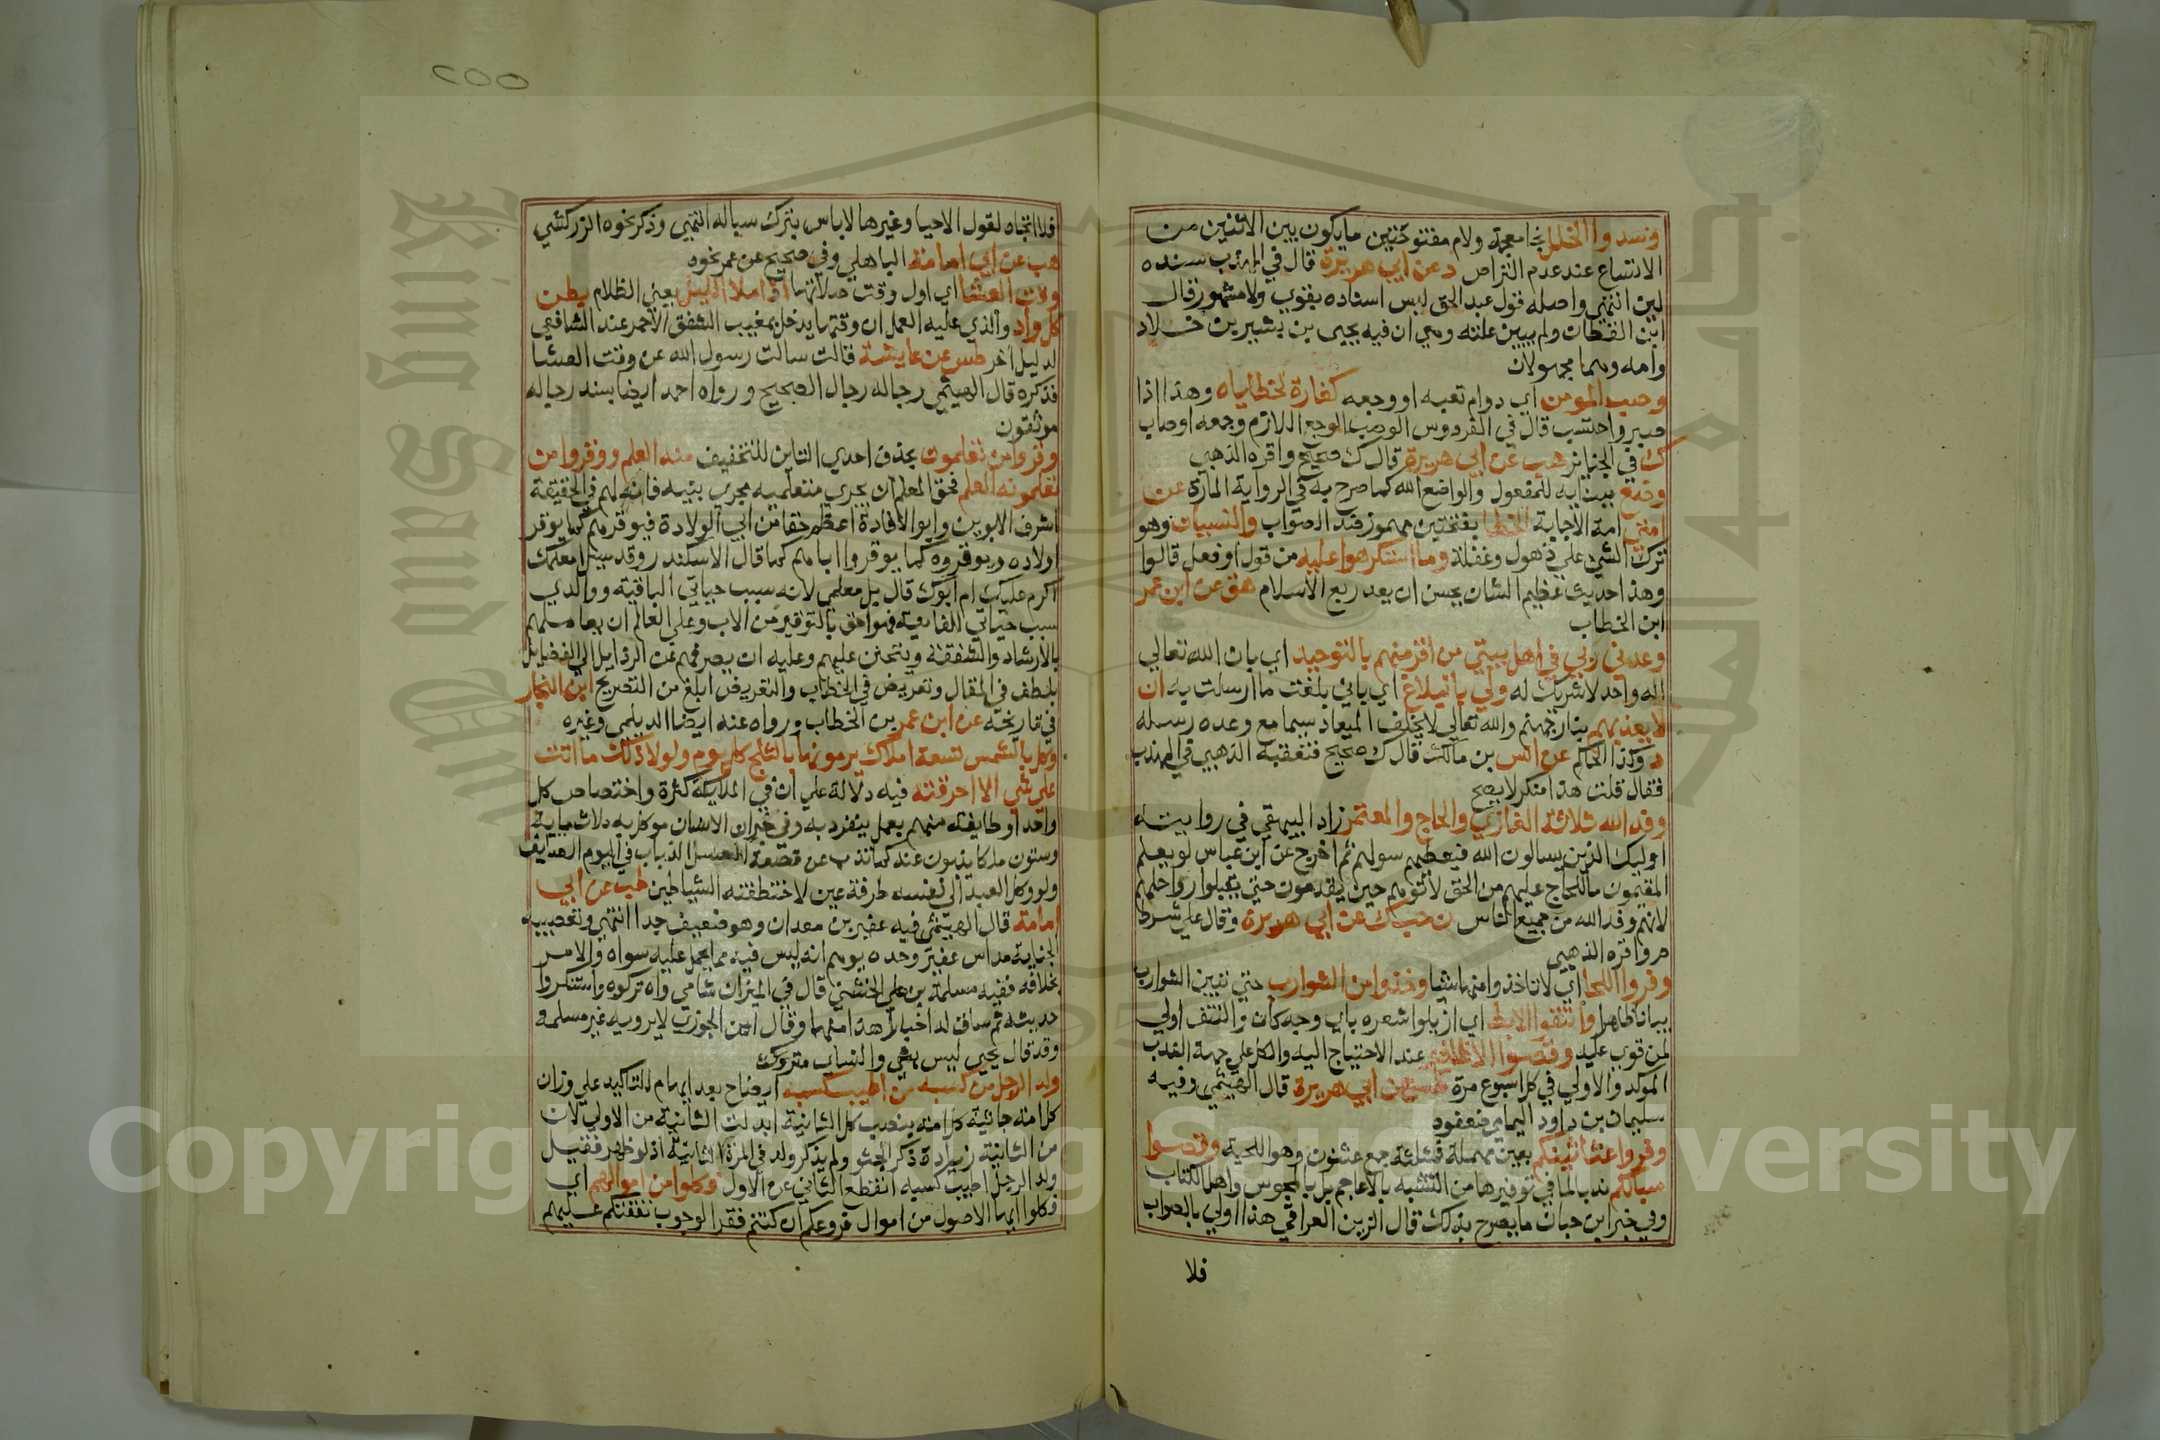 وسدوا الخلل بخا معجمة ولام مفتوحتين ما يكون بين الاثنين من
الاتساع عند عدم التراص د عن ابي هريرة قال في المهذب سنده
لين انتهي واصله قول عبد الحق ليس اسناده بقوي ولا مشهور قال
ابن القطان ولم يبين علته وهي ان فيه يحيي بن بشير بن خلاد
وامه وهما مجهولان
وصب المومن اي دوام تعبه او وجعه كفارة لخطاياه وهذا اذا
صبر واحتسب قال في الفردوس الوصب الوجع اللازم وجمعه اوصاب
ك في الجنايز هب عن ابي هريرة قال ك صحيح واقره الذهبي
وضع ببنايه للمفعول والواضع الله كما صرح به في الرواية المارة عن
امتي امة الاجابة الخطا بفتحتين مهموز ضد الصواب والنسيان وهو
ترك الشي علي ذهول وغفلة وما استكرهوا عليه من قول او فعل قالوا
وهذا حديث عظيم الشان يحسن ان يعد ربع الاسلام هق عن ابن عمر
ابن الخطاب
وعدني ربي في اهل بيتي من اقر منهم بالتوحيد اي بان الله تعالي
اله واحد لا شريك له ولي بالبلاغ اي باني بلغت ما ارسلت به ان
لا يعذبهم بنار جهنم والله تعالي لا يخلف الميعاد سيما مع وعده رسله
د وكذا الحاكم عن انس بن مالك قال ك صحيح فتعقبه الذهبي في المهذب
فقال قلت هذا منكر لا يصح
وفد الله ثلاثة الغازي والحاج والمعتمر زاد البيهقي في روايته
اوليك الذين يسالون الله فيعطيهم سولهم ثم اخرج عن ابن عباس لو يعلم
المقيمون ما للحاج عليهم من الحق لاتوهم حين يقدمون حتي يقبلوا رواحلهم
لانهم وفد الله من جميع الناس ن حب ك عن ابي هريرة وقال علي شرط
م واقره الذهبي
وفروا اللحا اي لا تاخذوا منها شيا وخذوا من الشوارب حتي تبين الشوارب
بيانا ظاهرا وانتفوا الابط اي ازيلوا شعره باي وجه كان والنتف اولي
لمن قوي عليه وقصوا الاظافير عند الاحتياج اليه والكل علي جهة الندب
الموكد والاولي في كل اسبوع مرة طس عن ابي هريرة قال الهيثمي وفيه
سليمان بن داود اليمامي ضعفوه
وفروا عثانينكم بعين مهملة فمثلثة جمع عثنون وهو اللحية وقصوا
سبالكم ندبا لما في توفيرها من التشبه بالاعاجم بل بالمجوس واهل الكتاب
وفي خبر ابن حبان ما يصرح بذلك قال الزين العراقي هذا اولي بالصواب
فلا
٢٥٥
فلا اتجاه لقول الاحيا وغيرها لا باس بترك سباله انتهي وذكر نحوه الزركشي
هب عن ابي امامة الباهلي وفي صحيح عن عمر نحوه
وقت العشا اي اول وقت صلاتها اذا ملا الليل يعني الظلام بطن
كل واد والذي عليه العمل ان وقتها يدخل بمغيب الشفق الاحمر عند الشافعي
لدليل اخر طس عن عايشة قالت سالت رسول الله عن وقت العشا
فذكره قال الهيثمي رجاله رجال الصحيح ورواه احمد ايضا بسند رجاله
موثقون
وقروا من تعلمون بحذف احدي التاين للتخفيف منه العلم ووقروا من
تعلمونه العلم فحق المعلم ان يجري متعلميه مجري بنيه فانه لهم في الحقيقة
اشرف الابوين وابو الافادة اعظم حقا من ابي الولادة فيوقرهم كما يوقر
اولاده ويوقروه كما يوقروا اباهم كما قال الاسكندر وقد سيل امعلمك
اكرم عليك ام ابوك قال بل معلمي لانه سبب حياتي الباقية ووالدي
سبب حياتي الفانية فهو احق بالتوقير من الاب وعلي العالم ان يعاملهم
بالارشاد والشفقة ويتحنن عليهم وعليه ان يصرفهم عن الرذايل الي الفضايل
بلطف في المقال وتعريض في الخطاب والتعريض ابلغ من التصريح ابن النجار
في تاريخه عن ابن عمر بن الخطاب ورواه عنه ايضا الديلمي وغيره
وكل بالشمس تسعة املاك يرمونها بالثلج كل يوم ولولا ذلك ما اتت
علي شي الا احرقته فيه دلالة علي ان في الملايكة كثرة واختصاص كل
واحد او طايفة منهم بعمل ينفرد به وفي خبر ان الانسان موكل به ثلاث ماية
وستون ملكا يذبون عنه كما تذب عن قصعة العسل الذباب في اليوم الصايف
ولو وكل العبد الي نفسه طرفة عين لاختطفته الشياطين طب عن ابي
امامة قال الهيثمي فيه عفير بن معدان وهو ضعيف جدا انتهي وتعصيبه
الجناية براس عفير وحده يوهم انه ليس فيه مما يحمل عليه سواه والامر
بخلافه ففيه مسلمة بن علي الخشني قال في الميزان شامي واه تركوه واستنكروا
حديثه ثم ساق له اخبارا هذا منها وقال ابن الجوزي لا يرويه غير مسلمة
وقد قال يحيي ليس بشي والنساي متروك
ولد الرجل من كسبه من اطيب كسبه ايضاح بعد ابهام للتاكيد علي وزان
كل امة جاثية كل امة بنصب كل الثانية ابدلت الثانية من الاولي لان
من الثانية زيادة ذكر الجثو ولم يذكر ولد في المرة الثانية اذ لو ظهر فقيل
ولد الرجل اطيب كسبه انقطع الثاني عن الاول فكلوا من اموالهم اي
فكلوا ايها الاصول من اموال فروعكم ان كنتم فقرا لوجوب نفقتكم عليهم
King Saud University
جامعة الملك سعود
Copyright © King Saud University